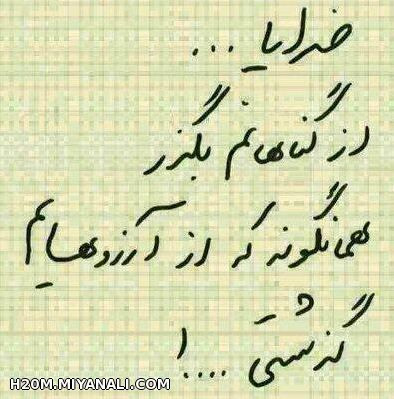 خدایا ...
از گناهانم بگزر
همانگونه که از آرزوهایم
گذشتی ....!
H20M.MIYANALI.COM